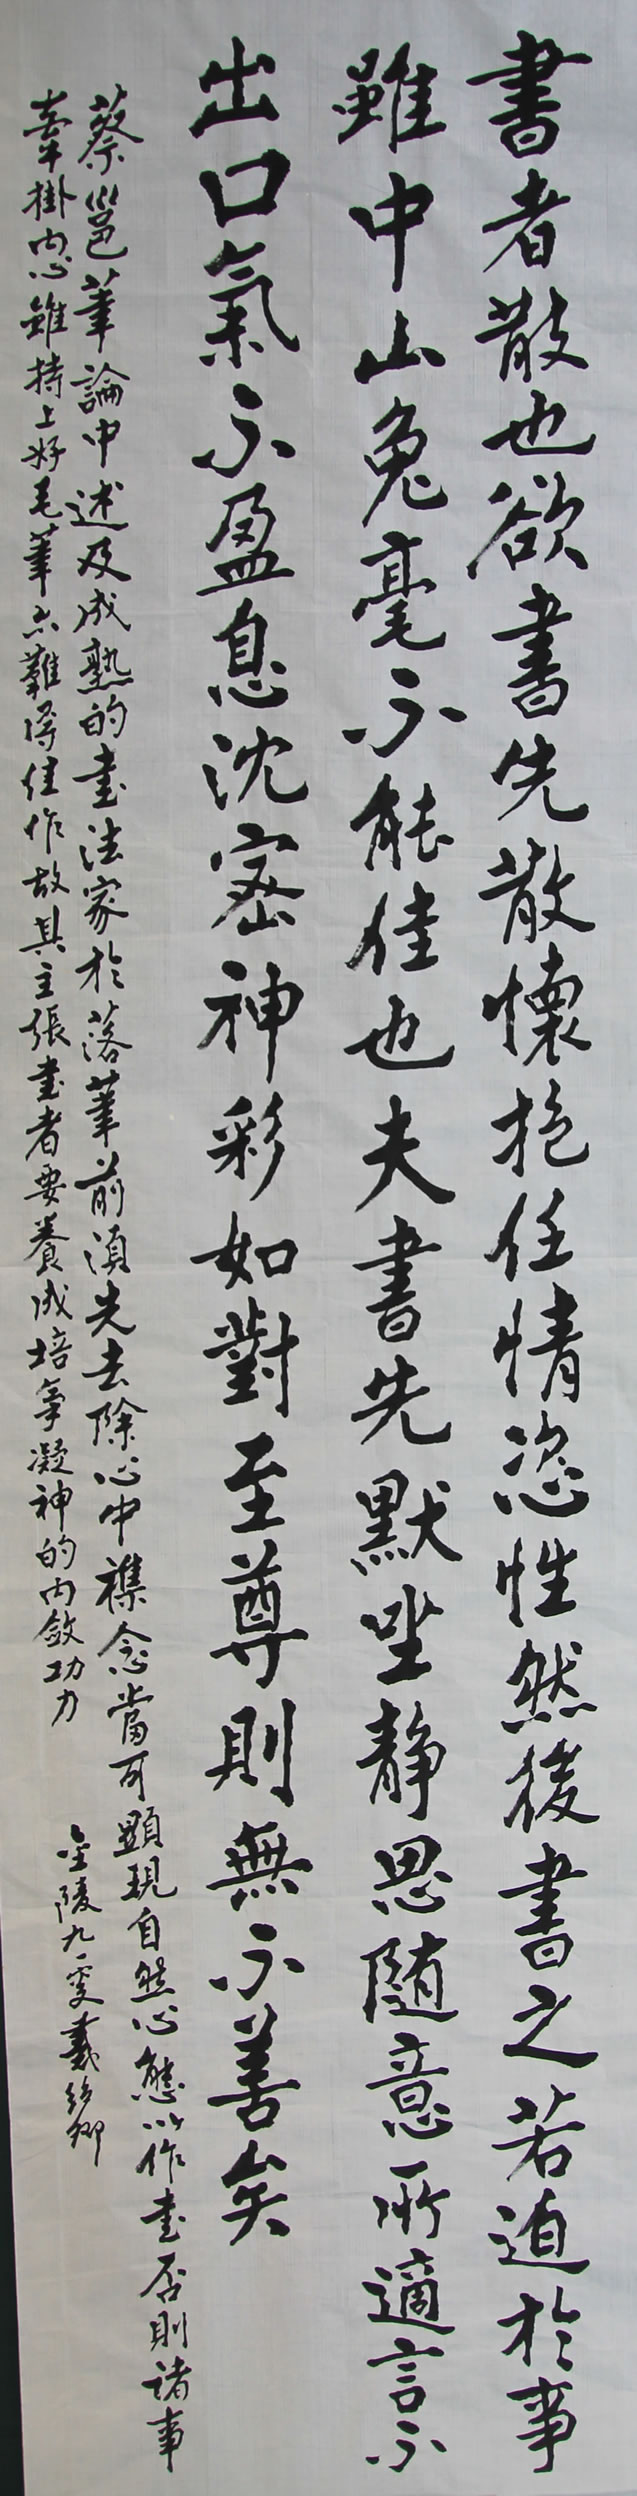 書者散也欲書先散懷抱任情恣性然後書之若迫於事
雖中山兔毫不能佳也夫書先默坐靜思隨意所適言不
出口氣不盈息沈密神彩如對至尊則無不善矣
蔡邕筆論中述及成熟的書法家於落筆前須先去除心中襍念當可顯現自然心態以作書否則諸事
牽掛內心雖持上好毛筆亦難得佳作故其主張書者要養成培氣凝神的內斂功力
金陵九雯戴